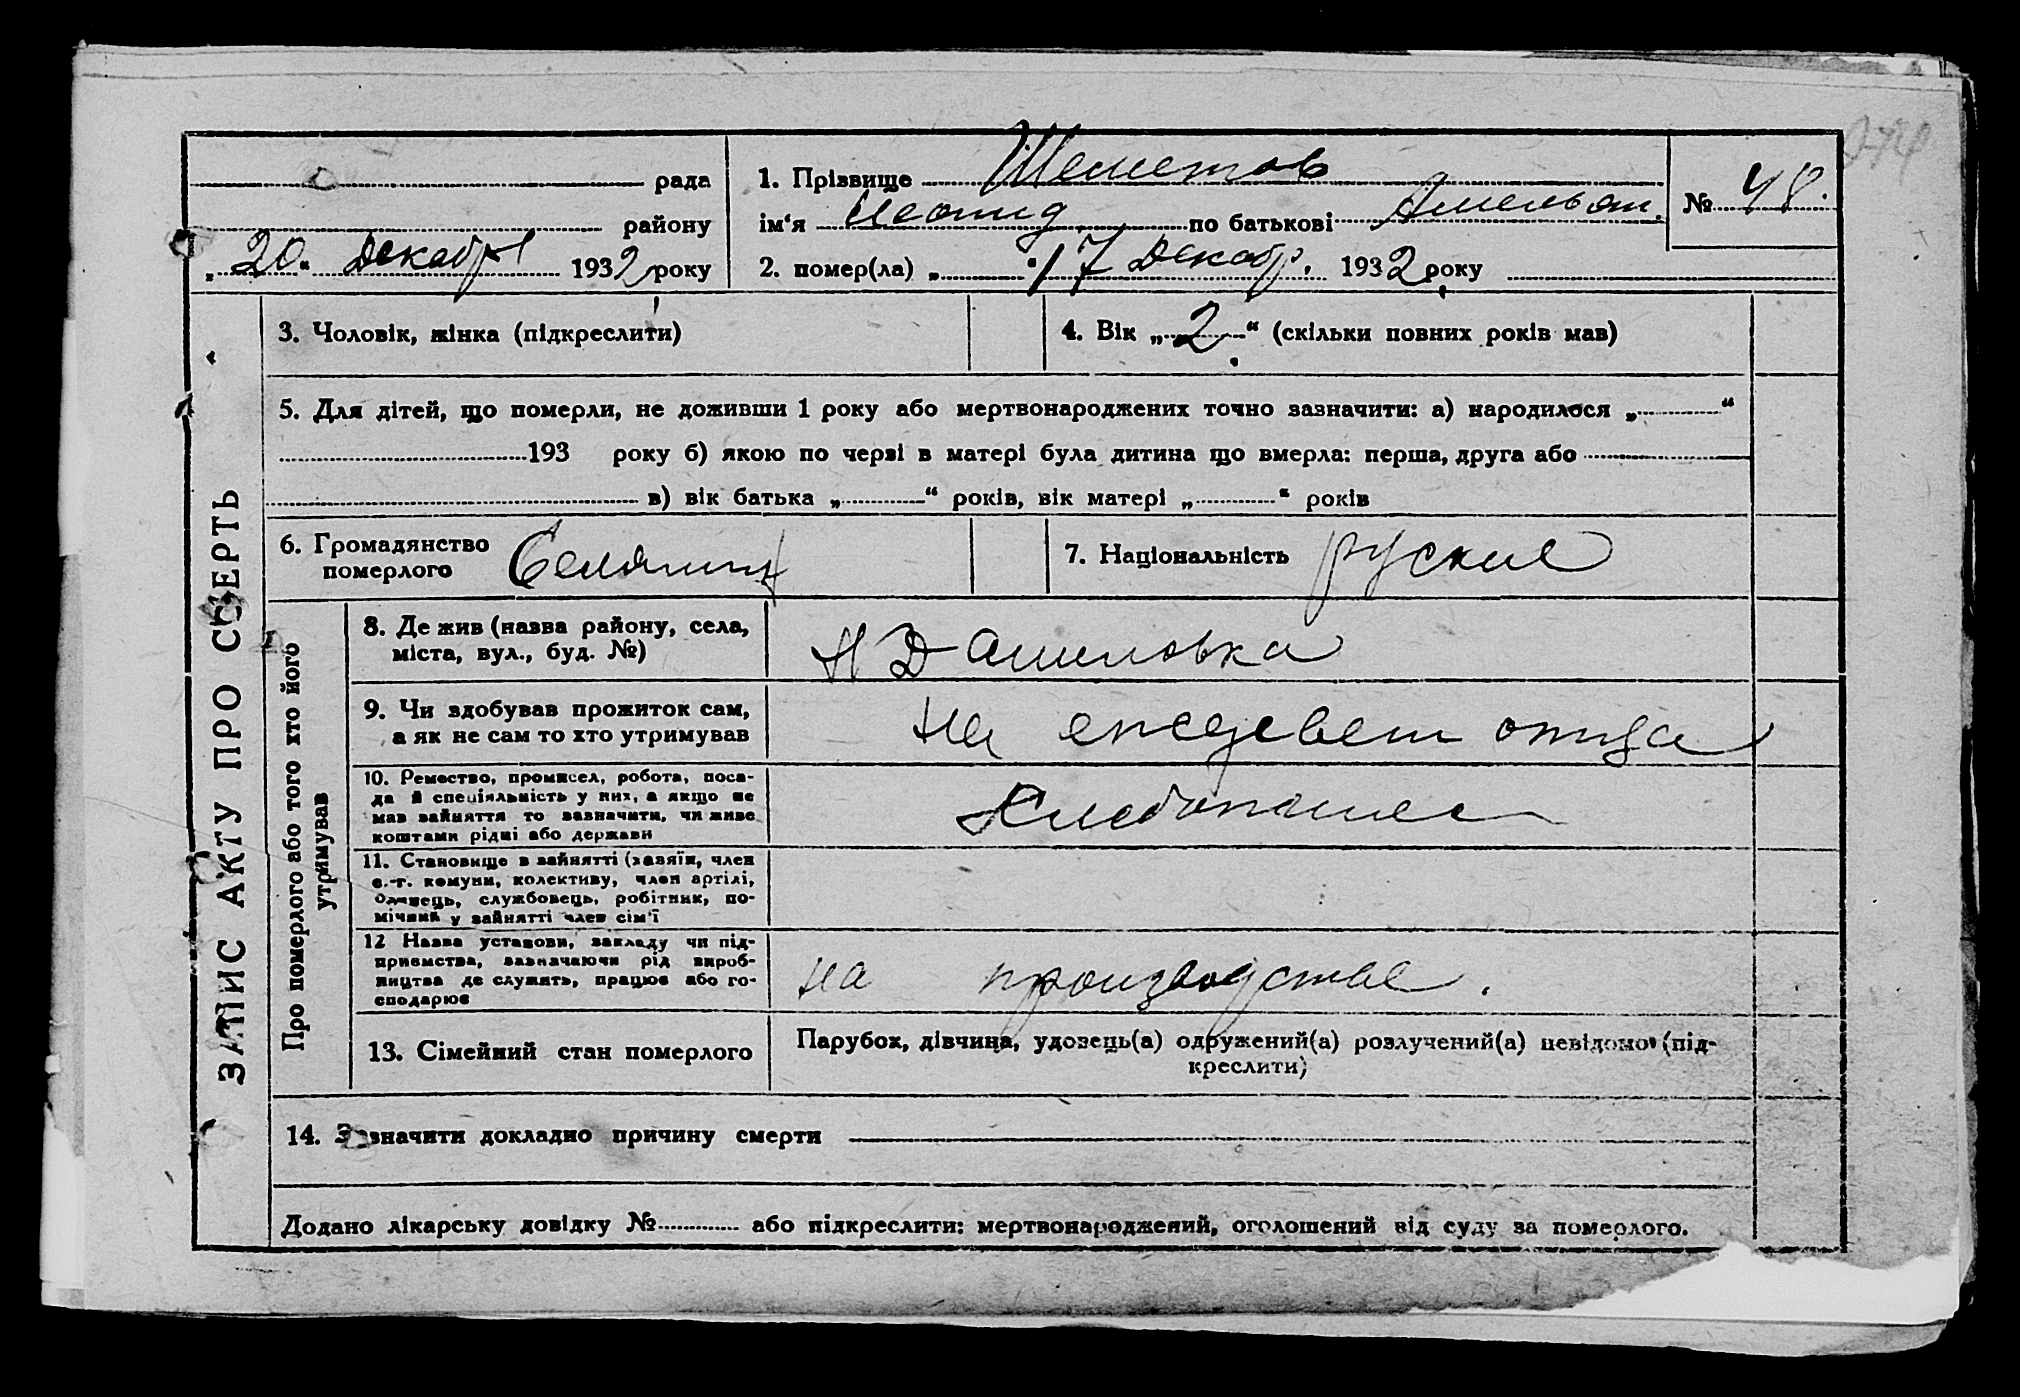 рада
району
„ 20 “ Декабря 1932 року
1. Прізвище Шеметов
ім‘я Леонид по батькові Амельян.
2. помер(ла) „ “ 17 Декабр. 1932 року
№ 48.
ЗАПИС АКТУ ПРО СМЕРТЬ
3. Чоловік, жінка (підкреслити)
4. Вік „ 2 “ (скільки повних років мав)
5. Для дітей, що померли, не доживши 1 року або мертвонароджених точно зазначити: а) народилося „ “
193 року б) якою по черзі в матері була дитина що вмерла: перша, друга або
в) вік батька „ “ років, вік матері „ “ років
6. Громадянство
померлого Селянин
7. Національність руские
Про померлого або того хто його
утримував
8. Де жив (назва району, села,
міста, вул., буд. №)
Н Дашиловка
9. Чи здобував прожиток сам,
а як не сам то хто утримував
на отца
10. Ремество, промисел, робота, поса-
да й спеціяльність у них, а якщо не
мав зайняття то зазначити, чи живе
коштами рідні або держави
Хлебопашес
11. Становище в зайнятті (хазяїн, член
с.-г. комуни, колективу, член артілі,
одинець, службовець, робітник, по-
мічний у зайнятті член сім‘ї
12 Назва установи, закладу чи під-
приємства, зазначаючи рід вироб-
ництва де служить, працює або го-
сподарює
на производстве.
13. Сімейний стан померлого
Парубок, дівчина, удовець(а) одружений(а) розлучений(а) невідомо (під-
креслити)
14. Зазначити докладно причину смерти
Додано лікарську довідку № або підкреслити: мертвонароджений, оголошений від суду за померлого.